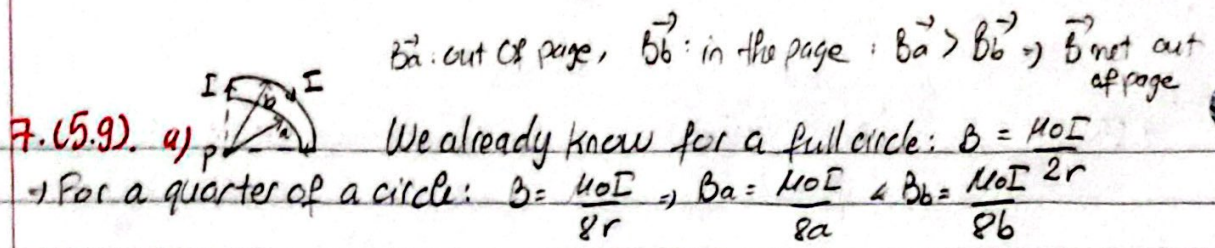 B⃗a: out of page, B⃗b: in the page : B⃗a > B⃗b ⇒ B⃗net out of page
I b I a P
7.(5.9). a) We already know for a full circle: B = μ0I/2r
⇒ For a quarter of a circle: B = μ0I/8r ⇒ Ba = μ0I/8a & Bb = μ0I/8b